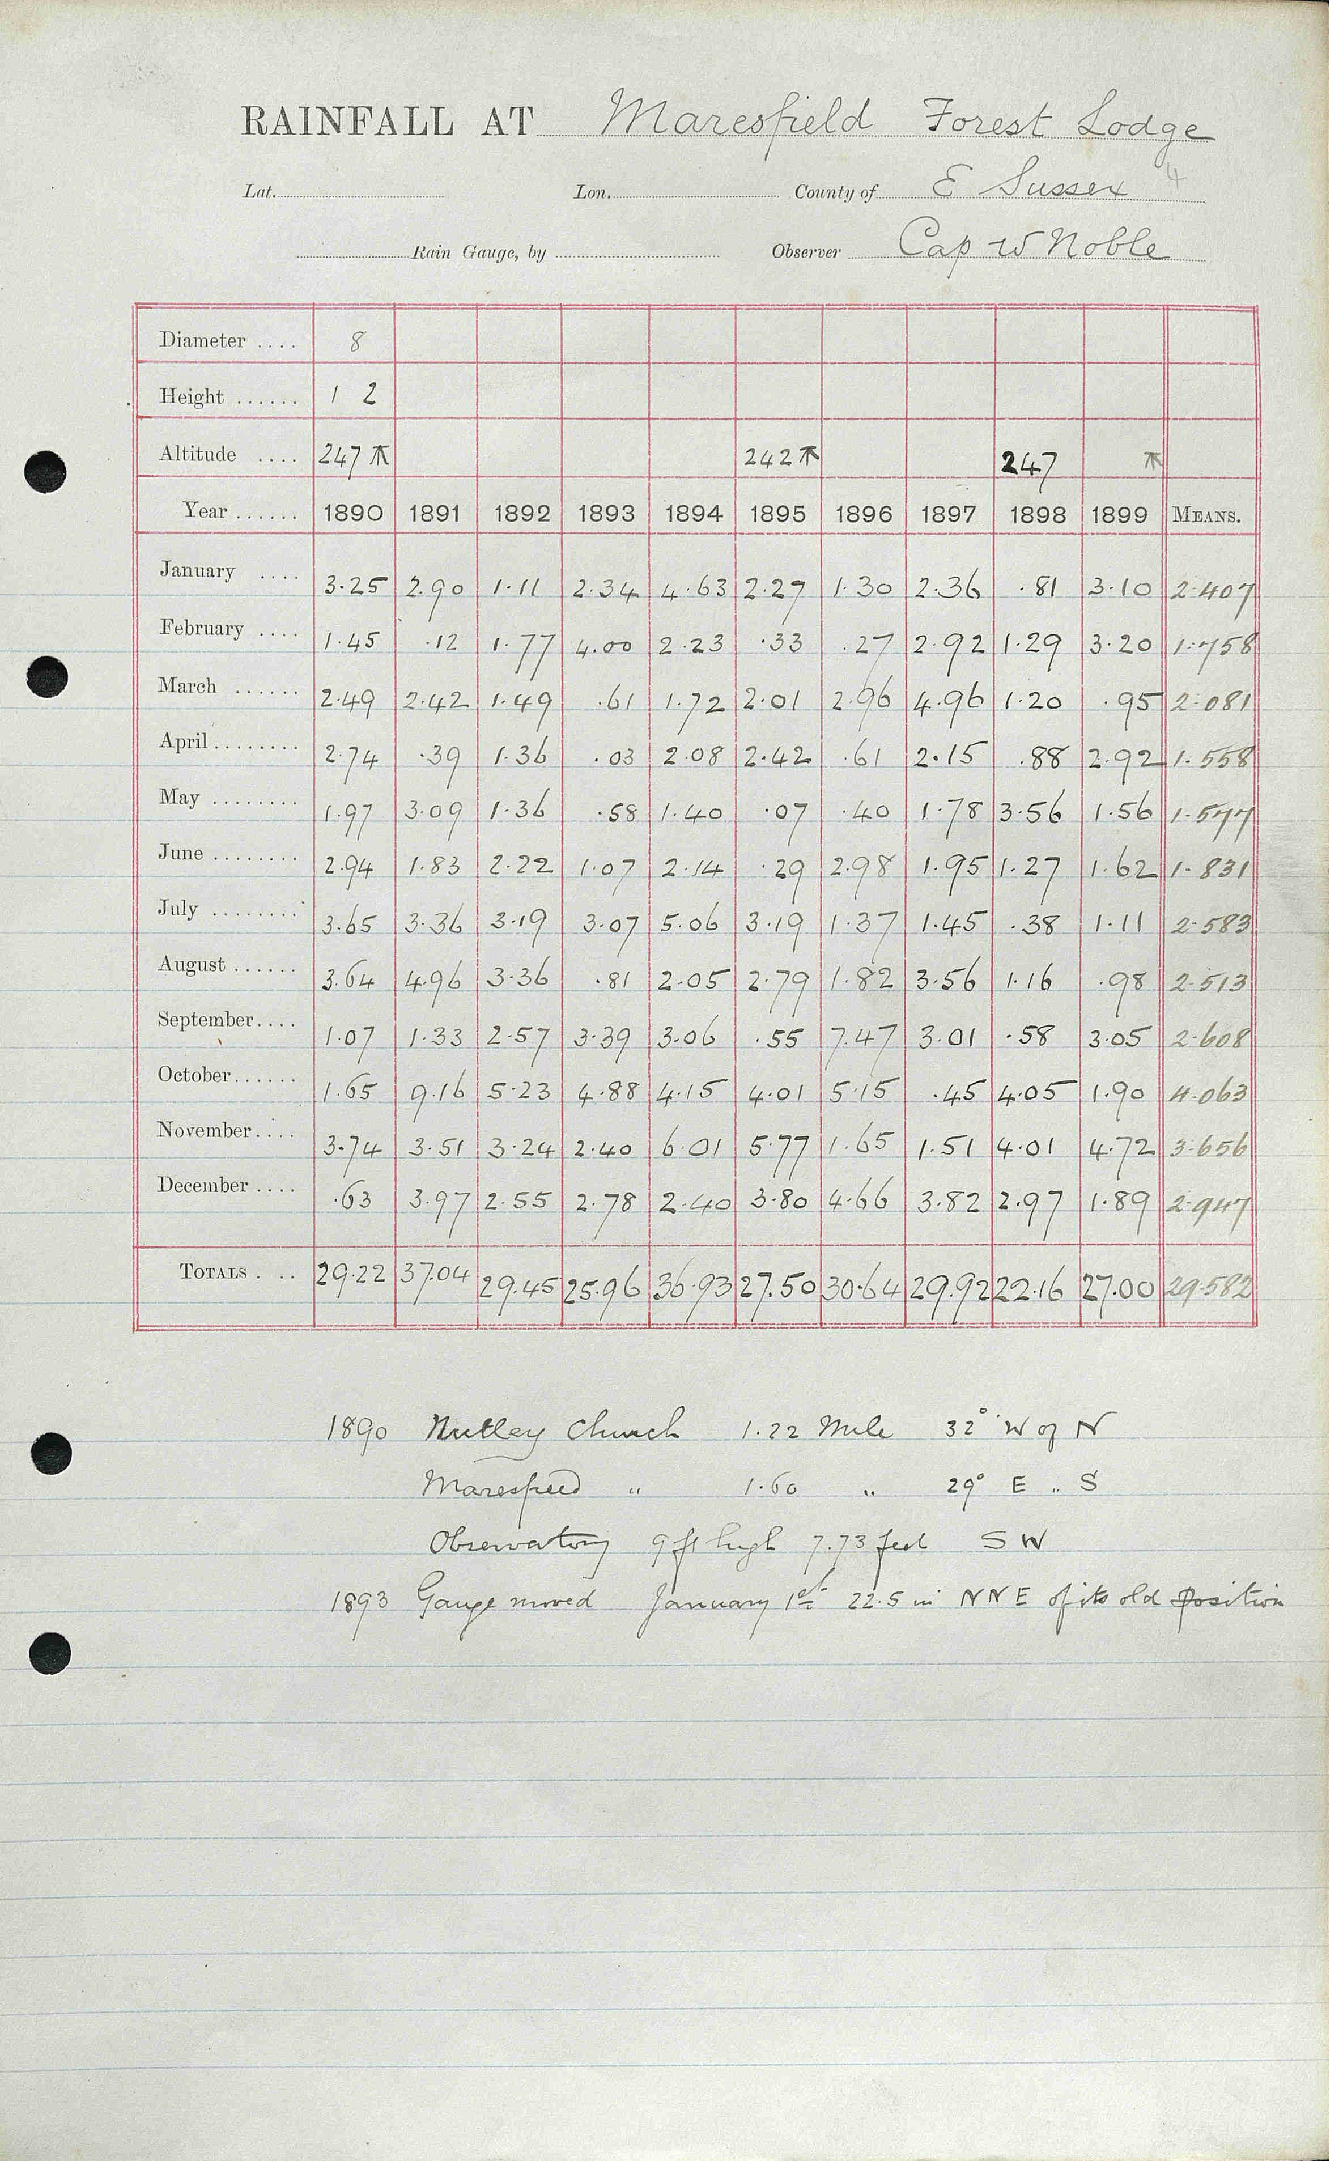 RAINFALL AT Maresfield Forest Lodge
Lat. Lon. County of E Sussex 4
Rain Gauge, by Observer Cap W Noble
Diameter .... 8
Height ...... 1 2
Altitude .... 247 242 247
Year ...... 1890 1891 1892 1893 1894 1895 1896 1897 1898 1899 MEANS.
January .... 3.25 2.90 1.11 2.34 4.63 2.27 1.30 2.36 .81 3.10 2.407
February .... 1.45 .12 1.77 4.00 2.23 .33 .27 2.92 1.29 3.20 1.758
March ...... 2.49 2.42 1.49 .61 1.72 2.01 2.96 4.96 1.20 .95 2.081
April ........ 2.74 .39 1.36 .03 2.08 2.42 .61 2.15 .88 2.92 1.558
May ........ 1.97 3.09 1.36 .58 1.40 .07 .40 1.78 3.56 1.56 1.577
June ........ 2.94 1.83 2.22 1.07 2.14 .29 2.98 1.95 1.27 1.62 1.831
July ........ 3.65 3.36 3.19 3.07 5.06 3.19 1.37 1.45 .38 1.11 2.583
August ...... 3.64 4.96 3.36 .81 2.05 2.79 1.82 3.56 1.16 .98 2.513
September.... 1.07 1.33 2.57 3.39 3.06 .55 7.47 3.01 .58 3.05 2.608
October...... 1.65 9.16 5.23 4.88 4.15 4.01 5.15 .45 4.05 1.90 4.063
November.... 3.74 3.51 3.24 2.40 6.01 5.77 1.65 1.51 4.01 4.72 3.656
December .... .63 3.97 2.55 2.78 2.40 3.80 4.66 3.82 2.97 1.89 2.947
TOTALS . .. 29.22 37.04 29.45 25.96 36.93 27.50 30.64 29.92 22.16 27.00 29.582
1890 Nutley Church 1.22 Mile 32° W of N
Maresfield " 1.60 " 29° E " S
Observatory 9 ft high 7.73 feet S W
1893 Gauge moved January 1st 22.5 in NNE of its old position